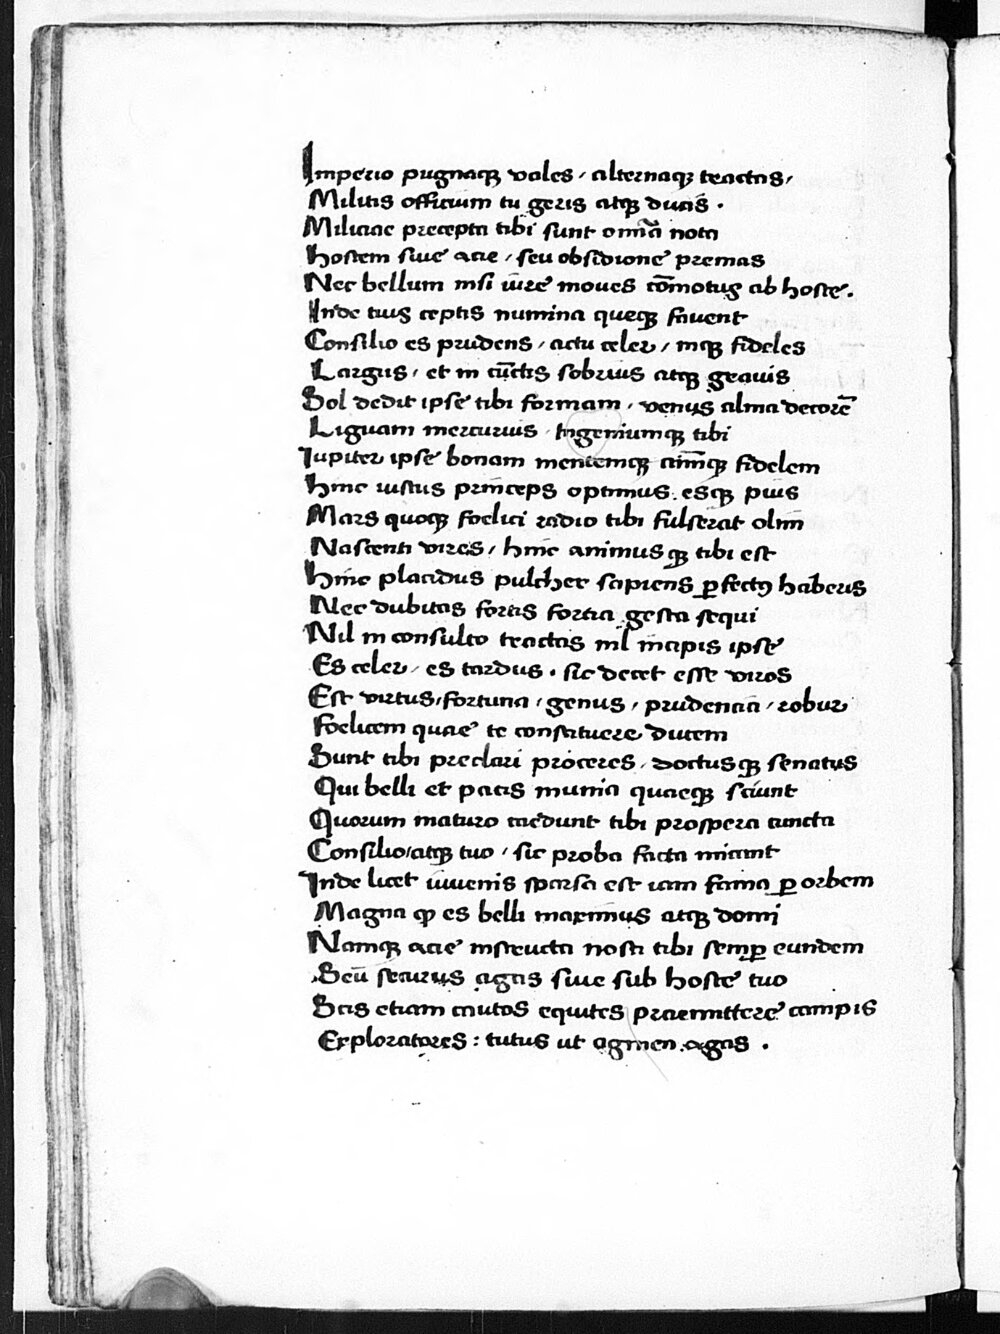 Imperio pugnaq; vales, alternaq; tractas,
Militis officium tu geris atq; ducis .
Miliciae precepta tibi sunt omīa nota
Hostem siue acie, seu obsidione premas
Nec bellum nisi iure moues cōmotus ab hoste.
Inde tuis ceptis numina queq; fauent
Consilio es prudens, actu celer, inq; fideles
Largus, et in cūctis sobrius atq; grauis
Sol dedit ipse tibi formam, venus alma decorē
Liguam mercurius Ingeniumq; tibi
Iupiter ipse bonam mentemq; aīmq; fidelem
Hinc iustus princeps optimus. esq; pius
Mars quoq; foelici radio tibi fulserat olim
Nascenti vires, hinc animusq; tibi est
Hinc placidus pulcher sapiens ꝑfectꝰ haberis
Nec dubitas fortis fortia gesta sequi
Nil inconsulto tractas nil incipis ipse
Es celer, es tardus . sic decet esse viros
Est virtus, fortuna, genus, prudencia, robur
Foelicem quae te constituere ducem
Sunt tibi preclari proceres, doctusq; senatus
Qui belli et pacis munia quaeq; sciunt
Quorum maturo caedunt tibi prospera cuncta
Consilio, atq; tuo, sic proba facta micant
Inde licet iuuenis sparsa est iam fama ꝑ orbem
Magna ꝙ es belli maximus atq; domi
Namq; acie instructa nosti tibi semꝑ eundem
Seū securus agas siue sub hoste tuo
Scis etiam cautos equites praemittere campis
Exploratores : tutus ut agmen agas .